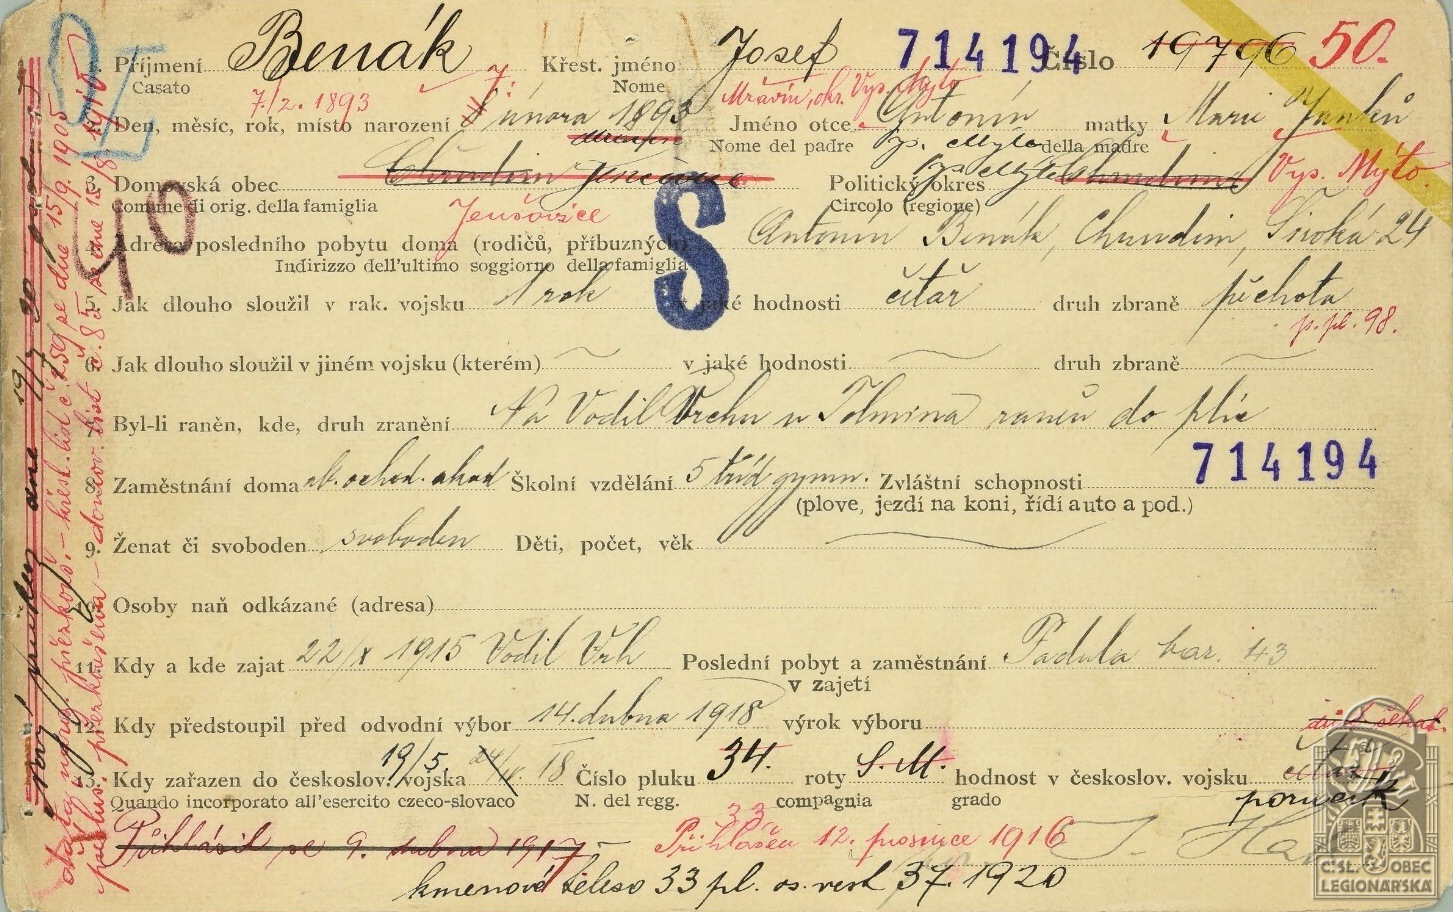 1. Příjmení Benák Křest. jméno Josef 714194 Číslo 19796 50.
Casato Nome
7./2. 1893 7. Mravín, okr. Vys. Mýto
Den, měsíc, rok, místo narození února 1893 Jméno otce Antonín matky Marie Janků
Nome del padre Vys. Mýto della madre
3. Domovská obec Chrudim Politický okres Vys. Mýto Chrudim Vys. Mýto.
Comune di orig. della famiglia Jenšovice Circolo (regione)
4. Adresa posledního pobytu doma (rodičů, příbuzných) Antonín Benák, Chrudim, Široká 24
Indirizzo dell'ultimo soggiorno della famiglia
5. Jak dlouho sloužil v rak. vojsku 1 rok v jaké hodnosti četař druh zbraně pěchota
p. pl. 98.
6. Jak dlouho sloužil v jiném vojsku (kterém) v jaké hodnosti druh zbraně
7. Byl-li raněn, kde, druh zranění Na Vodil Vrchu u Tolmina raněn do plic
714194
8. Zaměstnání doma ab. obchod. akad Školní vzdělání 5 tříd gymn. Zvláštní schopnosti
(plove, jezdí na koni, řídí auto a pod.)
9. Ženat či svoboden svoboden Děti, počet, věk
10. Osoby naň odkázané (adresa)
11. Kdy a kde zajat 22/X 1915 Vodil Vrh Poslední pobyt a zaměstnání Padula bar. 43
v zajetí
12. Kdy předstoupil před odvodní výbor 14. dubna 1918 výrok výboru
13. Kdy zařazen do českoslov. vojska 19/5. 24/IV. 18 Číslo pluku 34. roty S. M. hodnost v českoslov. vojsku četař
Quando incorporato all'esercito czeco-slovaco N. del regg. 33 compagnia grado poručík
Přihlásil se 9. dubna 1917 Přihlášen 12. prosince 1916
kmenové těleso 33 pl. os. vest 37. 1920
40
S
ČSL. OBEC
LEGIONÁŘSKÁ